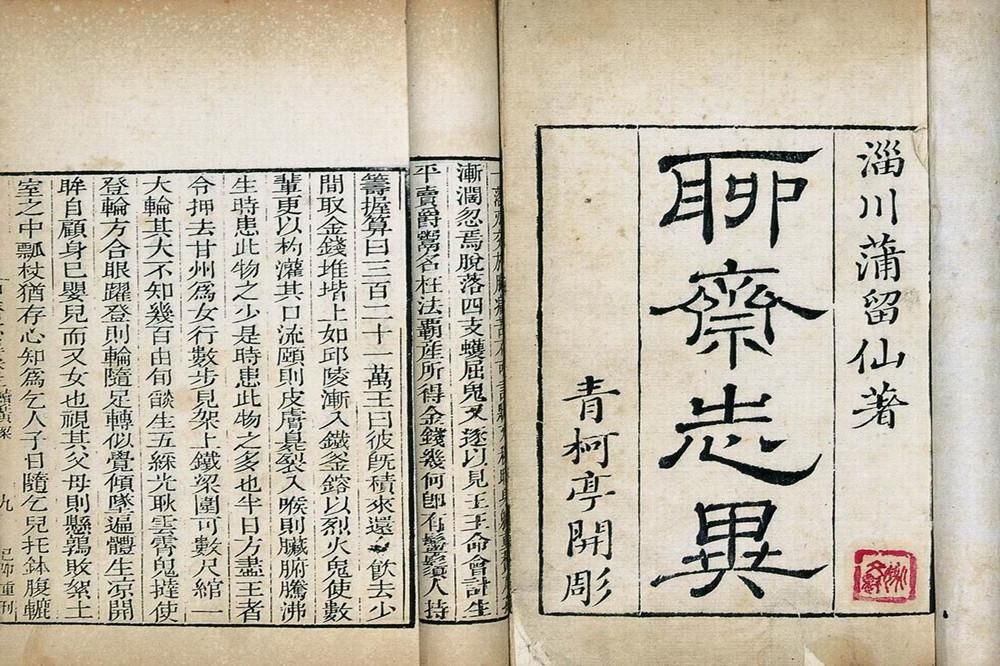 淄川蒲留仙著
聊齋志異
青柯亭開彫
漸濶忽焉脫落四支蠖屈鬼又逐以見王王命會計生
平賣爵鬻名枉法覇產所得金錢幾何卽有鬡鬚人持
籌握算曰三百二十一萬王曰彼旣積來還飲去少
間取金錢堆堦上如邱陵漸入鐵釜鎔以烈火鬼使數
輩更以杓灌其口流頤則皮膚臭裂入喉則臟腑騰沸
生時患此物之少是時患此物之多也半日方盡王者
令押去甘州爲女行數步見架上鐵梁圍可數尺綰一
大輪其大不知幾百由旬燄生五綵光耿雲霄鬼撻使
登輪方合眼躍登則輪隨足轉似覺傾墜遍體生凉開
眸自顧身已嬰兒而又女也視其父母則懸鶉敗絮土
室之中瓢杖猶存心知爲乞人子日隨乞兒托鉢腹轆
九